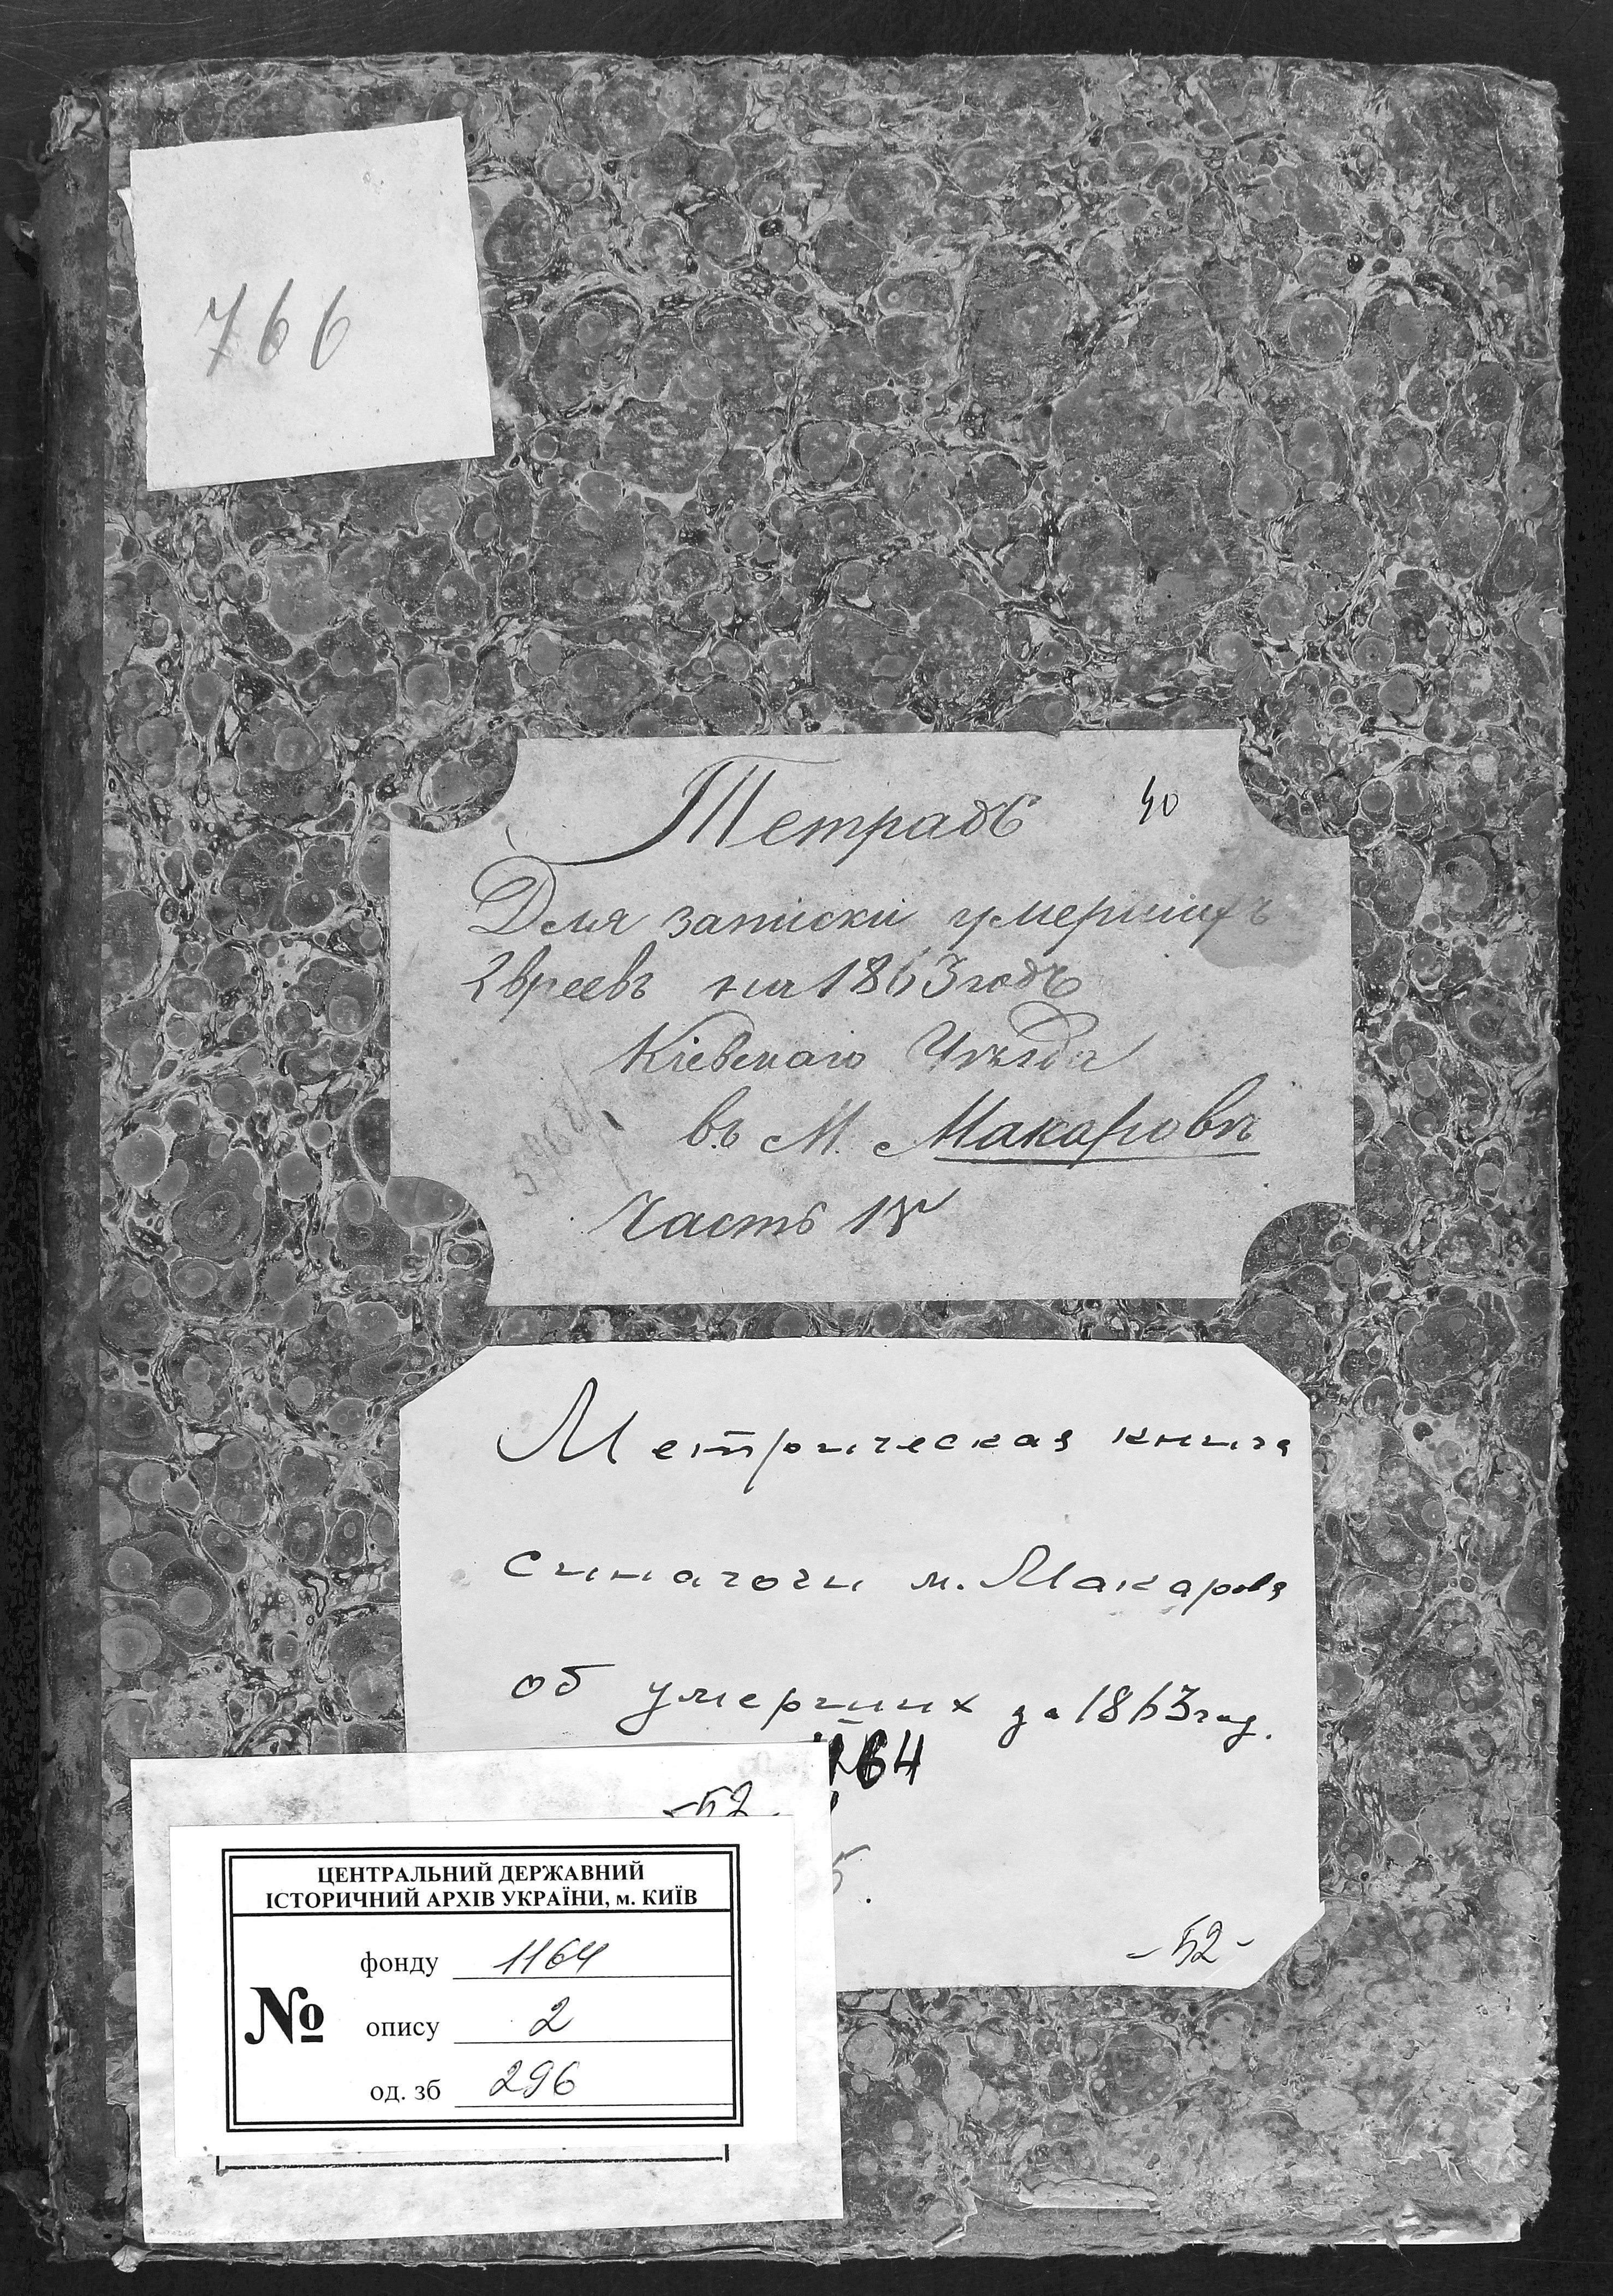 766
Тетрадь 40
Для записки умершихъ
Евреевъ на 1863 годъ
Кіевскаго Уѣзда
въ М. Макаровѣ
Часть IV
Метрическая книга
синагоги м. Макарова
об умерших за 1863 год.
64
-52
5.
-52-
ЦЕНТРАЛЬНИЙ ДЕРЖАВНИЙ
ІСТОРИЧНИЙ АРХІВ УКРАЇНИ, м. КИЇВ
фонду 1164
№ опису 2
од. зб 296